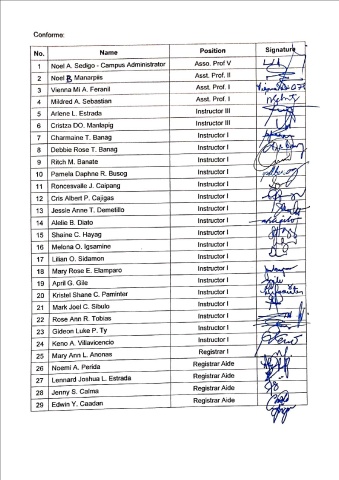 Conforme:
No. Name Position Signature
1 Noel A. Sedigo - Campus Administrator Asso. Prof V
2 Noel B. Manarpiis Asst. Prof. II
3 Vienna Mi A. Feranil Asst. Prof. I
4 Mildred A. Sebastian Asst. Prof. I
5 Arlene L. Estrada Instructor III
6 Cristza DO. Manlapig Instructor III
7 Charmaine T. Banag Instructor I
8 Debbie Rose T. Banag Instructor I
9 Ritch M. Banate Instructor I
10 Pamela Daphne R. Busog Instructor I
11 Roncesvalle J. Caipang Instructor I
12 Cris Albert P. Cajigas Instructor I
13 Jessie Anne T. Demetillo Instructor I
14 Alelie B. Diato Instructor I
15 Shaine C. Hayag Instructor I
16 Melona O. Igsamine Instructor I
17 Lilian O. Sidamon Instructor I
18 Mary Rose E. Elamparo Instructor I
19 April G. Gile Instructor I
20 Kristel Shane C. Paminter Instructor I
21 Mark Joel C. Sibulo Instructor I
22 Rose Ann R. Tobias Instructor I
23 Gideon Luke P. Ty Instructor I
24 Keno A. Villavicencio Instructor I
25 Mary Ann L. Anonas Registrar I
26 Noemi A. Perida Registrar Aide
27 Lennard Joshua L. Estrada Registrar Aide
28 Jenny S. Calma Registrar Aide
29 Edwin Y. Caadan Registrar Aide